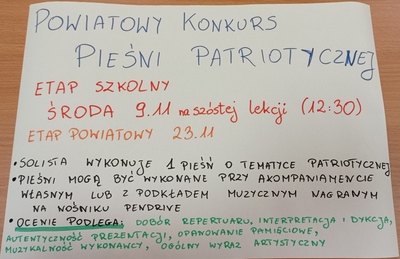 POWIATOWY KONKURS
PIEŚNI PATRIOTYCZNEJ
ETAP SZKOLNY
ŚRODA 9.11 na szóstej lekcji (12:30)
ETAP POWIATOWY 23.11
• SOLISTA WYKONUJE 1 PIEŚŃ O TEMATYCE PATRIOTYCZNEJ
• PIEŚNI MOGĄ BYĆ WYKONANE PRZY AKOMPANIAMENCIE
WŁASNYM LUB Z PODKŁADEM MUZYCZNYM NAGRANYM
NA NOŚNIKU PENDRIVE
• OCENIE PODLEGA: DOBÓR REPERTUARU, INTERPRETACJA I DYKCJA,
AUTENTYCZNOŚĆ PREZENTACJI, OPANOWANIE PAMIĘCIOWE,
MUZYKALNOŚĆ WYKONAWCY, OGÓLNY WYRAZ ARTYSTYCZNY